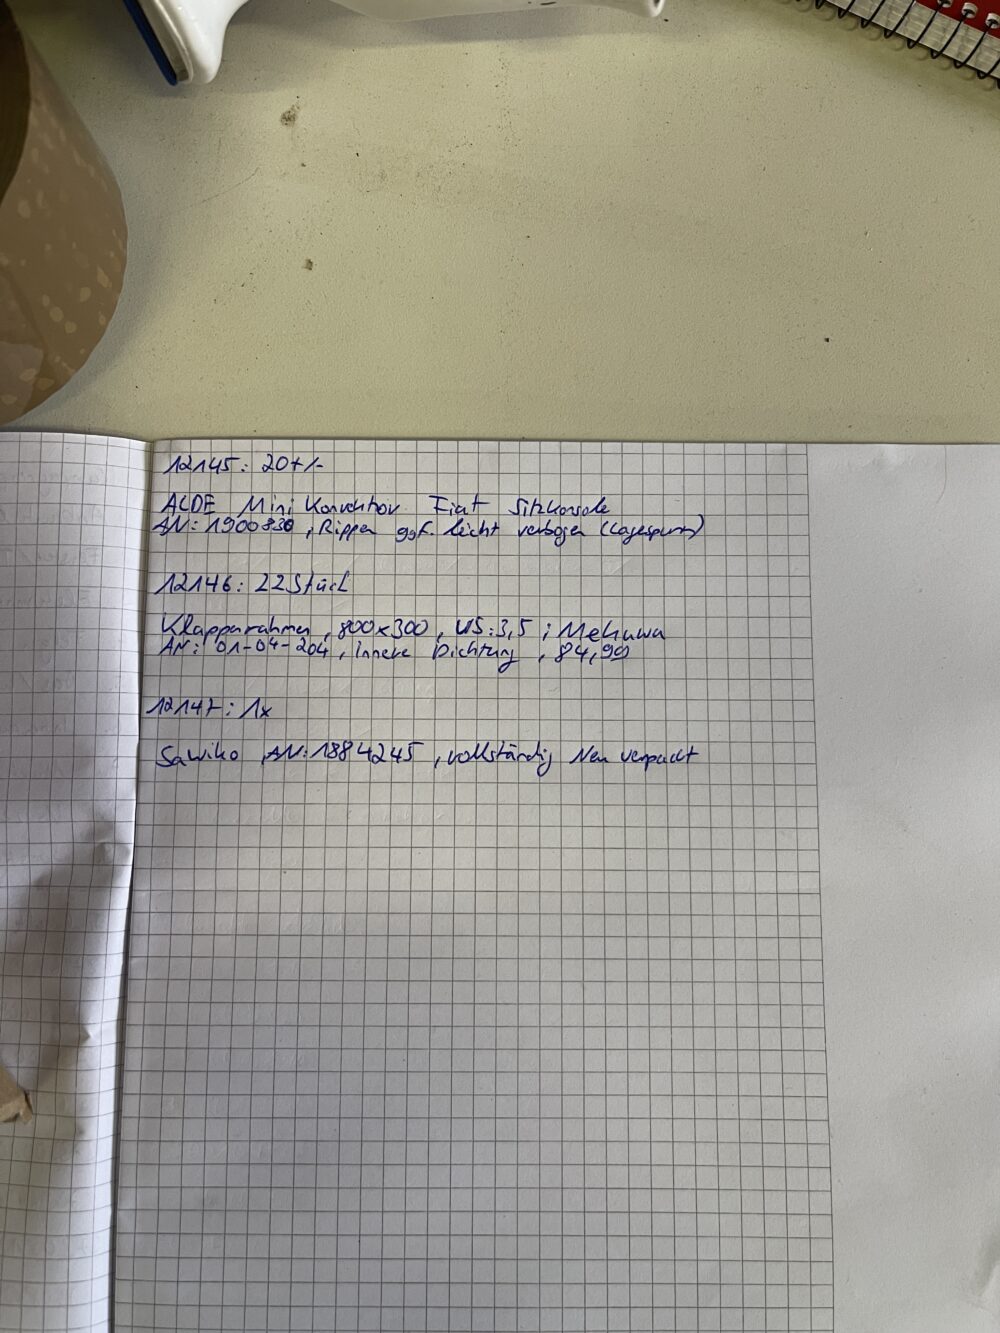 12145: 20+/-
ALDE Mini Konvektor Fiat Sitzkonsole
AN: 1900830, Rippen ggf. leicht verbogen (Lagespuren)
12146: 22 Stück
Klapparahmen, 800x300, WS: 3,5; Mekuwa
AN: 01-04-204, innere Dichtung, 84,99
12147: 1x
Sawiko, AN: 1884245, vollständig Neu verpackt